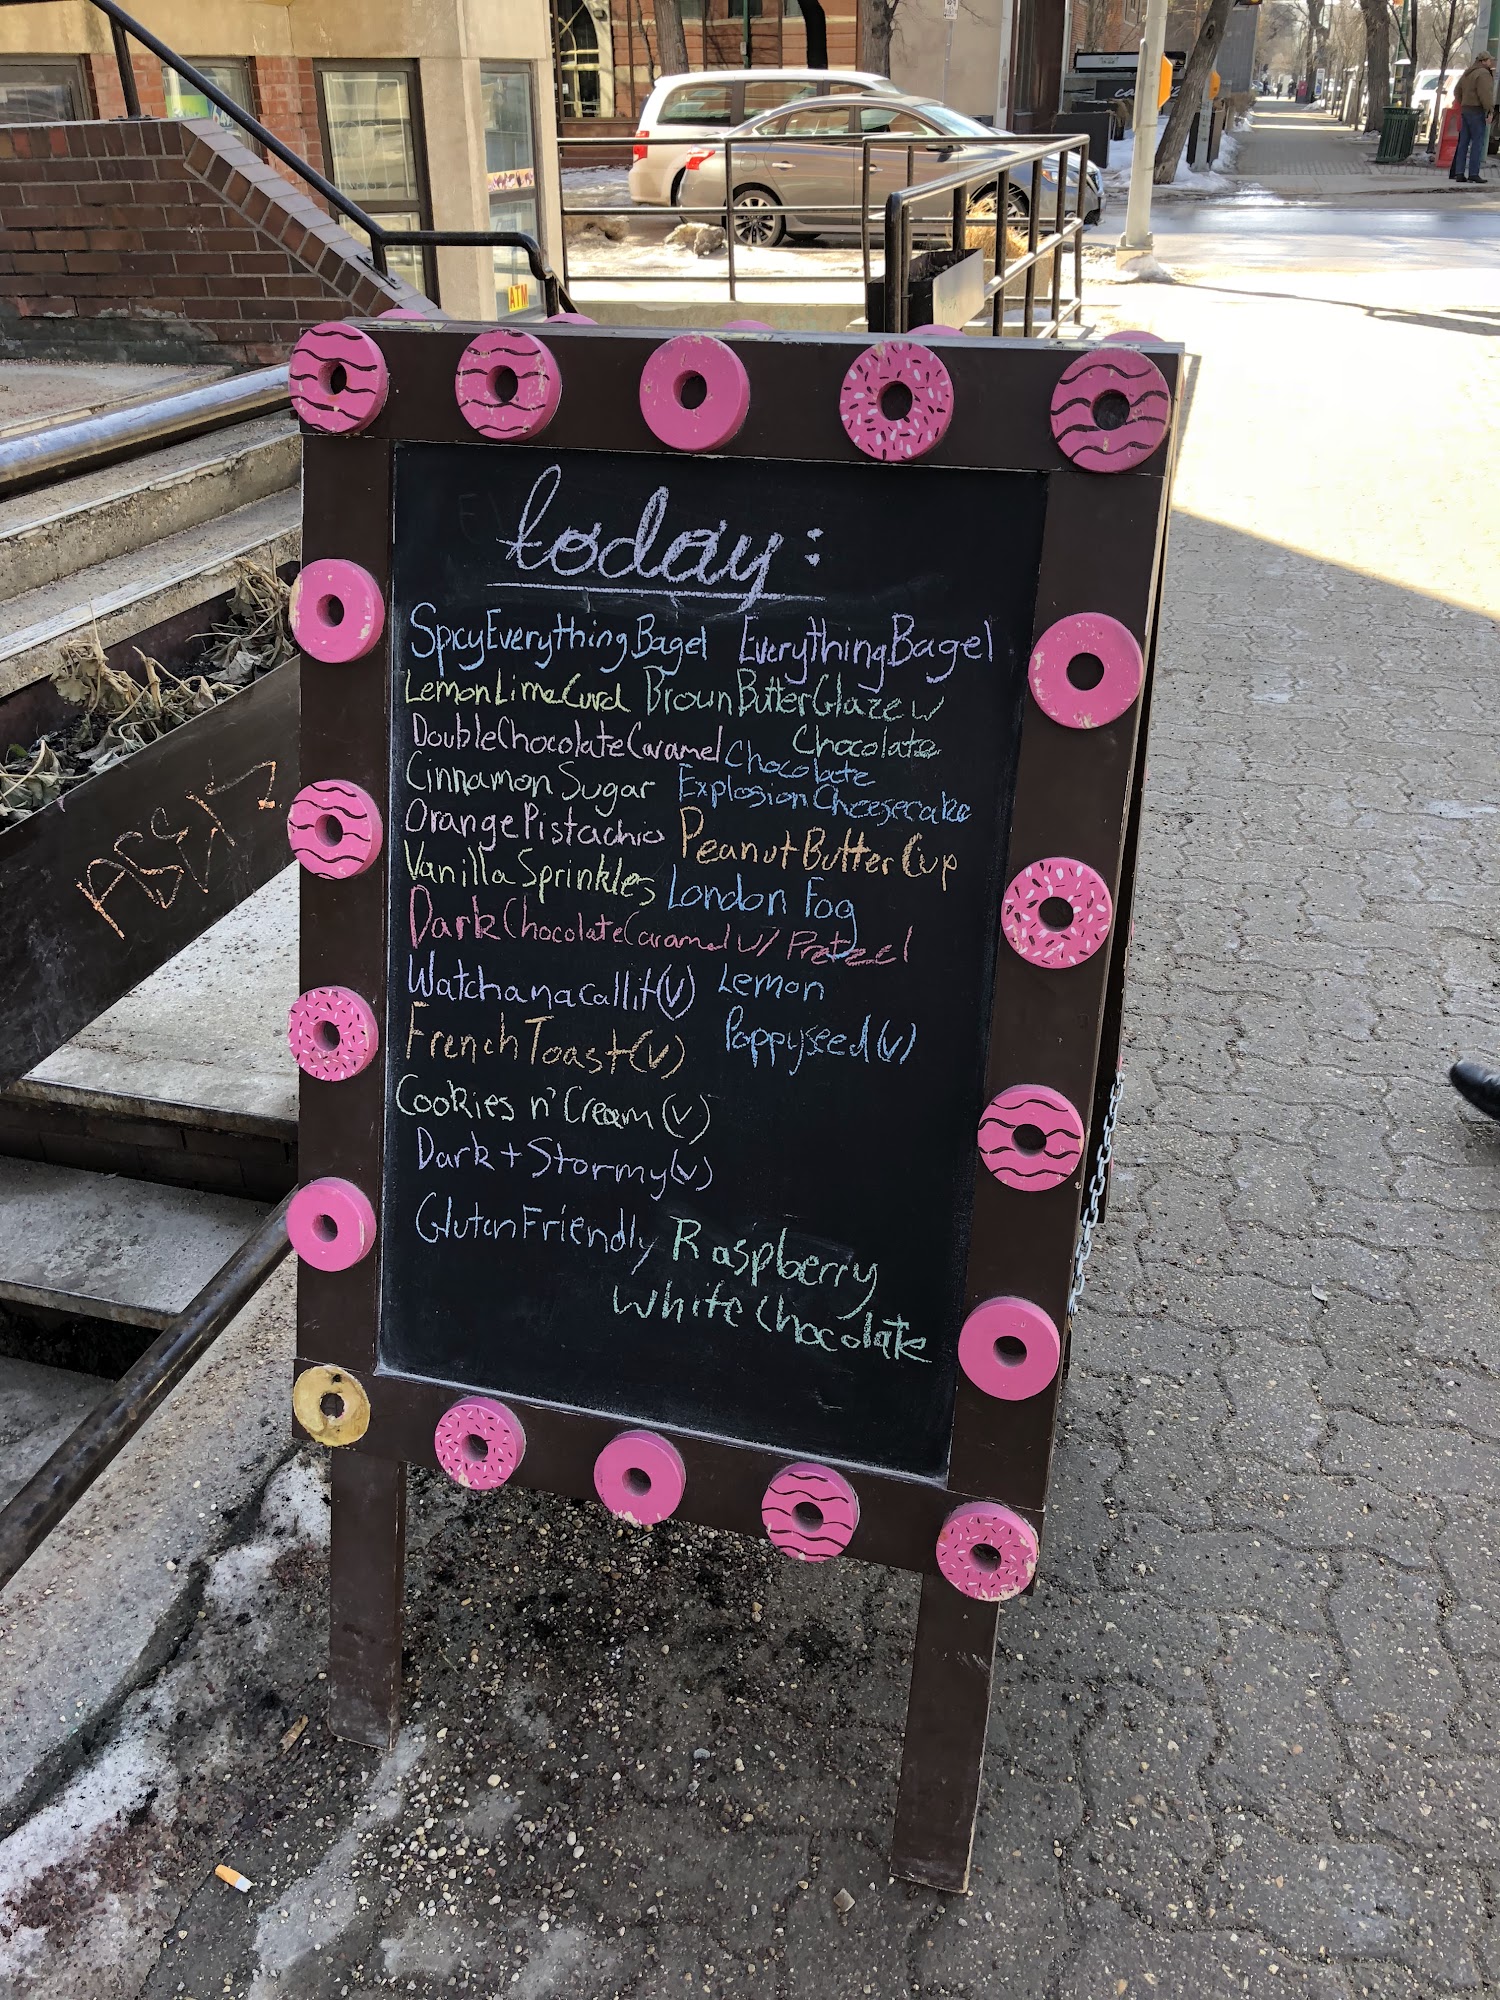 today:
Spicy Everything Bagel Everything Bagel
Lemon Lime Curd Brown Butter Glaze w
Chocolate
Double Chocolate Caramel Chocolate
Cinnamon Sugar Explosion Cheesecake
Orange Pistachio Peanut Butter Cup
Vanilla Sprinkles London Fog
Dark Chocolate Caramel w/ Pretzel
Watchamacallit (v) Lemon
French Toast (v) Poppyseed (v)
Cookies n' Cream (v)
Dark + Stormy (v)
Gluten Friendly Raspberry
White Chocolate
ATM